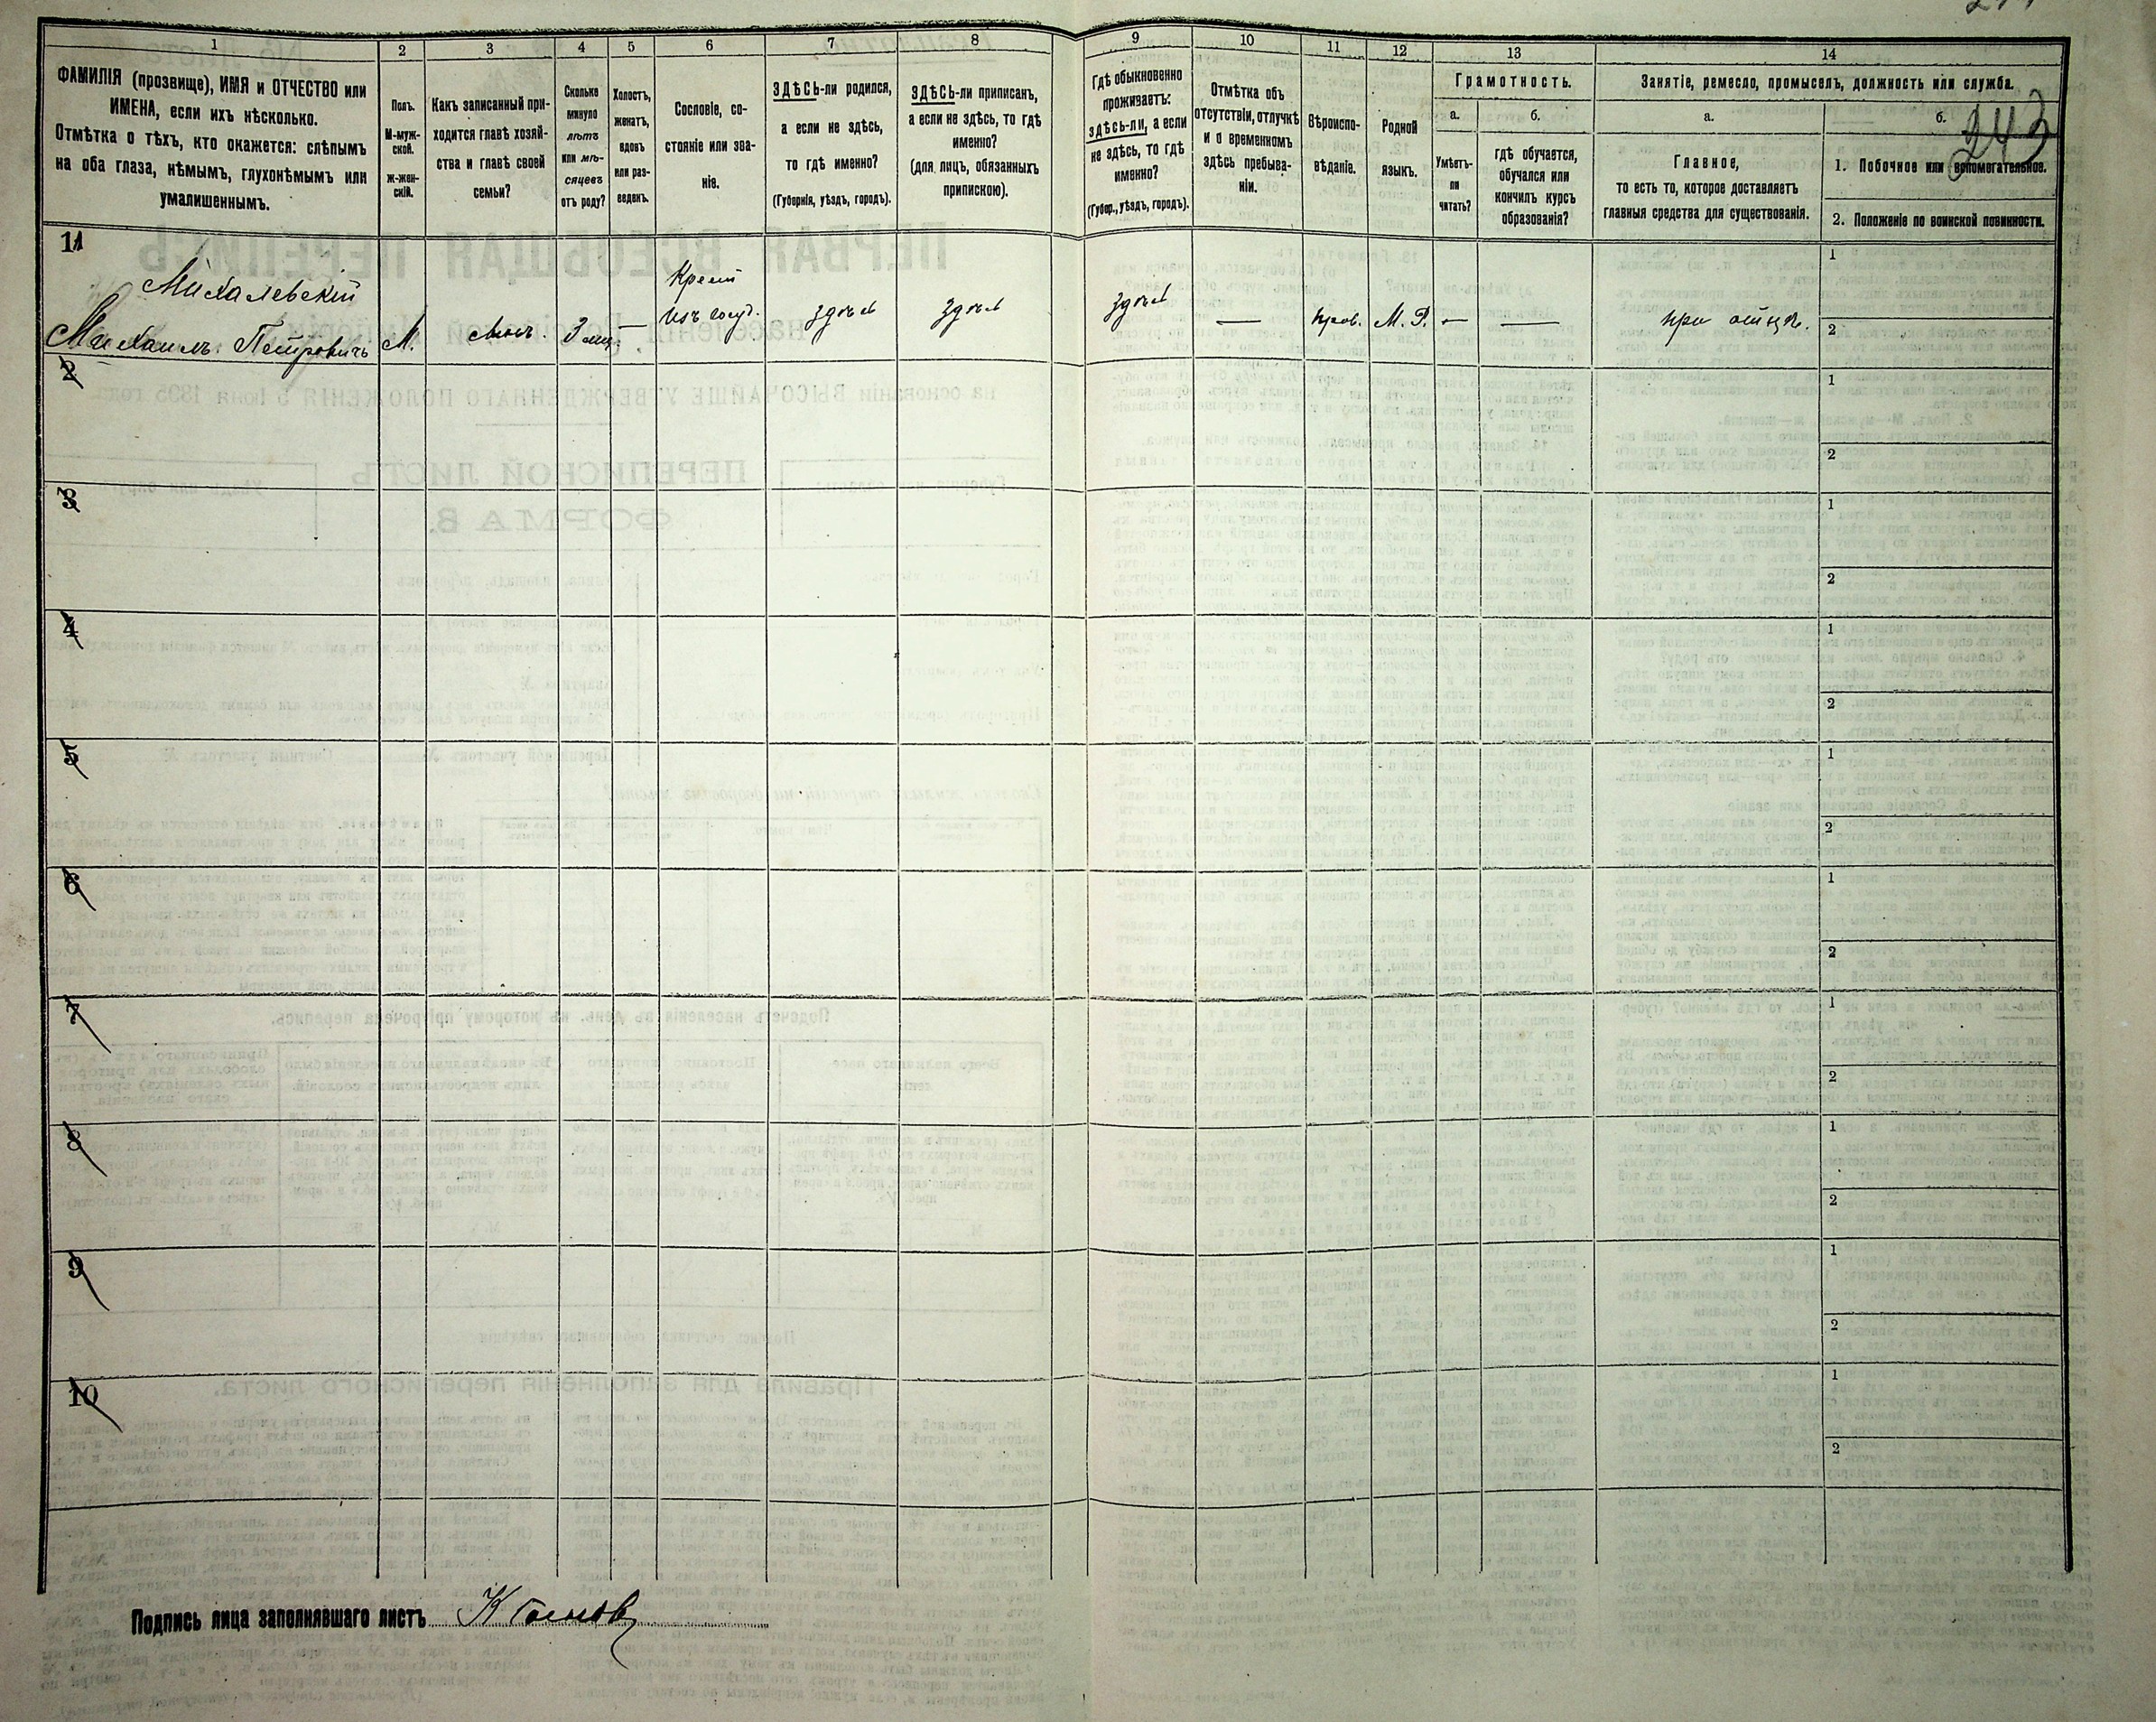 1
2
3
4
5
6
7
8
9
10
11
12
13
14
ФАМИЛІЯ (прозвище), ИМЯ и ОТЧЕСТВО или
ИМЕНА, если ихъ нѣсколько.
Отмѣтка о тѣхъ, кто окажется: слѣпымъ
на оба глаза, нѣмымъ, глухонѣмымъ или
умалишеннымъ.
Полъ.
М-муж-
ской.
ж-жен-
скій.
Какъ записанный при-
ходится главѣ хозяй-
ства и главѣ своей
семьи?
Сколько
минуло
лѣтъ
или мѣ-
сяцевъ
отъ роду?
Холостъ,
женатъ,
вдовъ
или раз-
веденъ.
Сословіе, со-
стояніе или зва-
ніе.
ЗДѢСЬ-ли родился,
а если не здѣсь,
то гдѣ именно?
(Губернія, уѣздъ, городъ).
ЗДѢСЬ-ли приписанъ,
а если не здѣсь, то гдѣ
именно?
(для лицъ, обязанныхъ
припискою).
Гдѣ обыкновенно
проживаетъ:
здѣсь-ли, а если
не здѣсь, то гдѣ
именно?
(Губер., уѣздъ, городъ).
Отмѣтка объ
отсутствіи, отлучкѣ
и о временномъ
здѣсь пребыва-
ніи.
Вѣроиспо-
вѣданіе.
Родной
языкъ.
Грамотность.
а.
Умѣетъ-
ли
читать?
б.
гдѣ обучается,
обучался или
кончилъ курсъ
образованія?
Занятіе, ремесло, промыселъ, должность или служба.
а.
Главное,
то есть то, которое доставляетъ
главныя средства для существованія.
б.
243
1. Побочное или вспомогательное.
2. Положеніе по воинской повинности.
11
Михалевскій
Михаилъ. Петровичъ
М.
сынъ.
3 мѣс.
—
Крест
изъ госуд.
здѣсь
здѣсь
здѣсь
—
прав.
М. Р.
—
—
при отцѣ.
1
2
2
1
2
3
1
2
4
1
2
5
1
2
6
1
2
7
1
2
8
1
2
9
1
2
10
1
2
Подпись лица заполнявшаго листъ